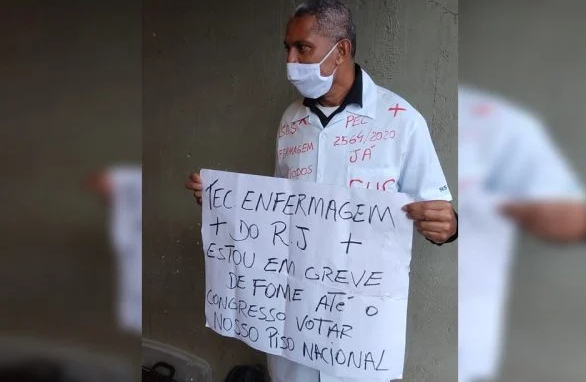 PEC
2564/2020
JÁ
+
TODOS
TEC ENFERMAGEM
+ DO RJ +
ESTOU EM GREVE
DE FOME ATÉ O
CONGRESSO VOTAR
NOSSO PISO NACIONAL